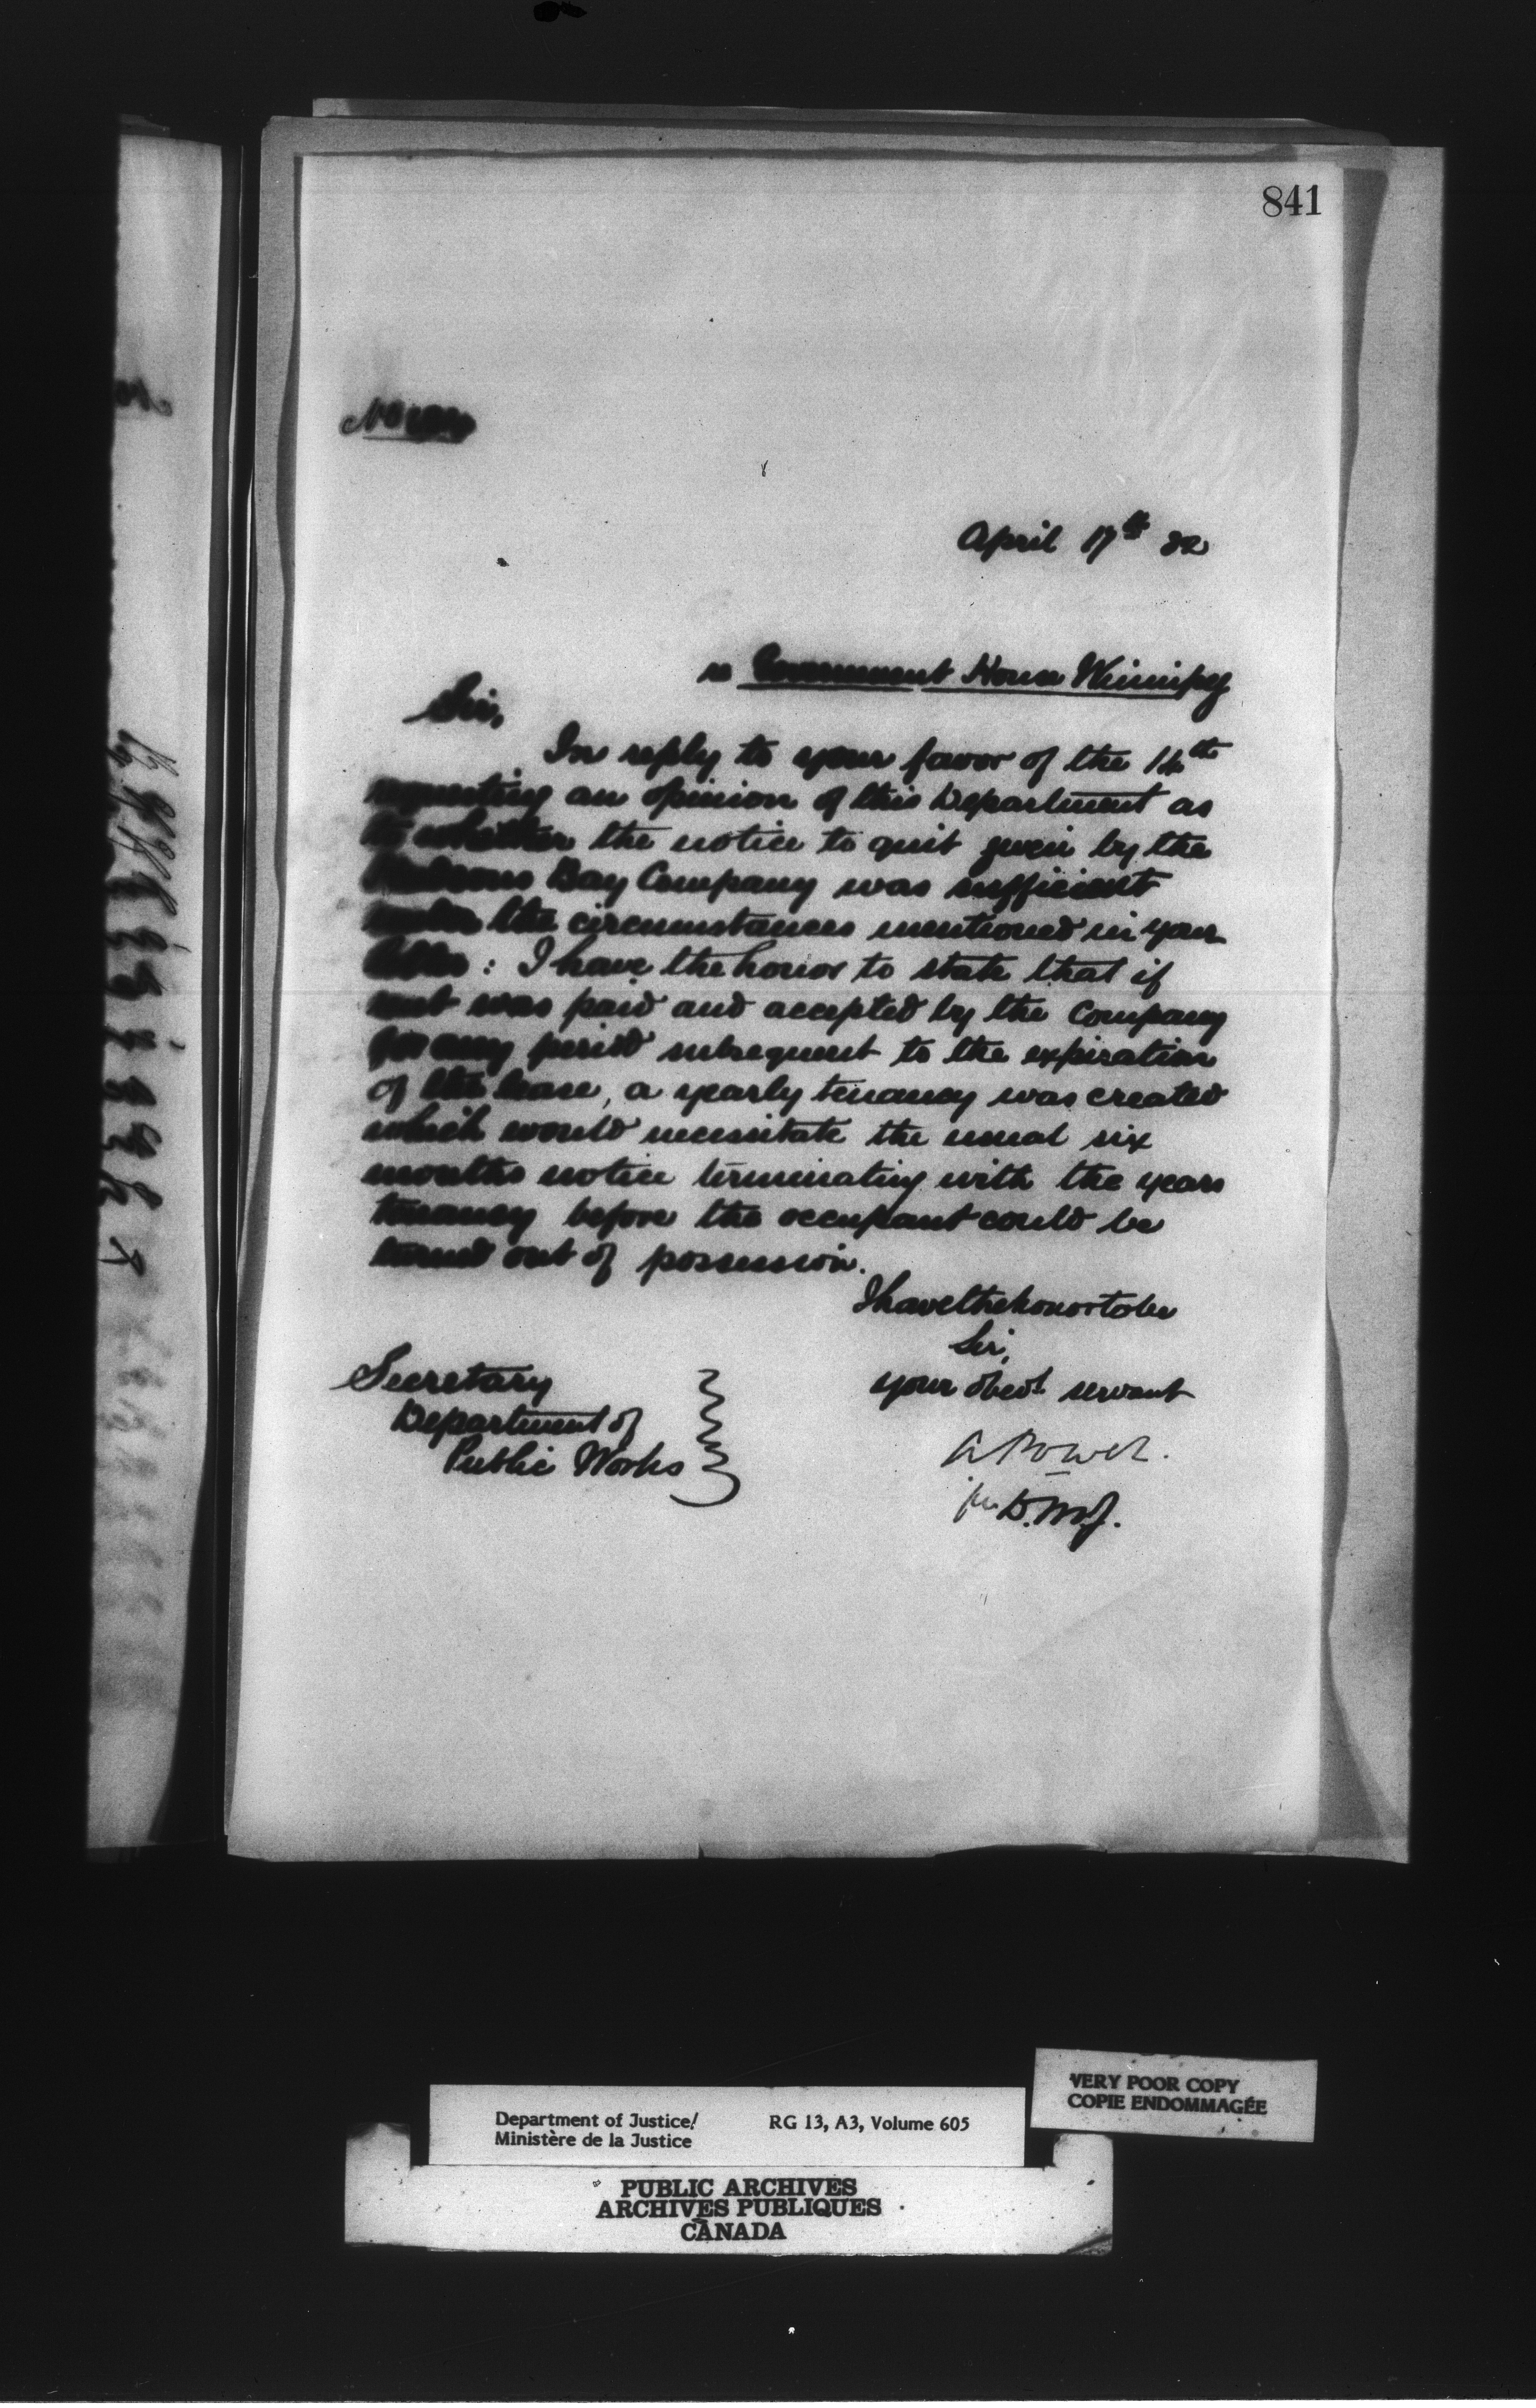 841
April 17th 82
re Government House Winnipeg
Sir,
In reply to your favor of the 14th
requesting an opinion of this Department as
to whether the notice to quit given by the
Hudsons Bay Company was sufficient
under the circumstances mentioned in your
letter : I have the honor to state that if
rent was paid and accepted by the Company
for any period subsequent to the expiration
of the lease, a yearly tenancy was created
which would necessitate the usual six
months notice terminating with the years
tenancy before the occupant could be
turned out of possession.
I have the honor to be
Sir,
your obedt servant
A Power.
for D.M.J.
Secretary
Department of
Public Works
VERY POOR COPY
COPIE ENDOMMAGÉE
Department of Justice/ RG 13, A3, Volume 605
Ministère de la Justice
PUBLIC ARCHIVES
ARCHIVES PUBLIQUES
CANADA